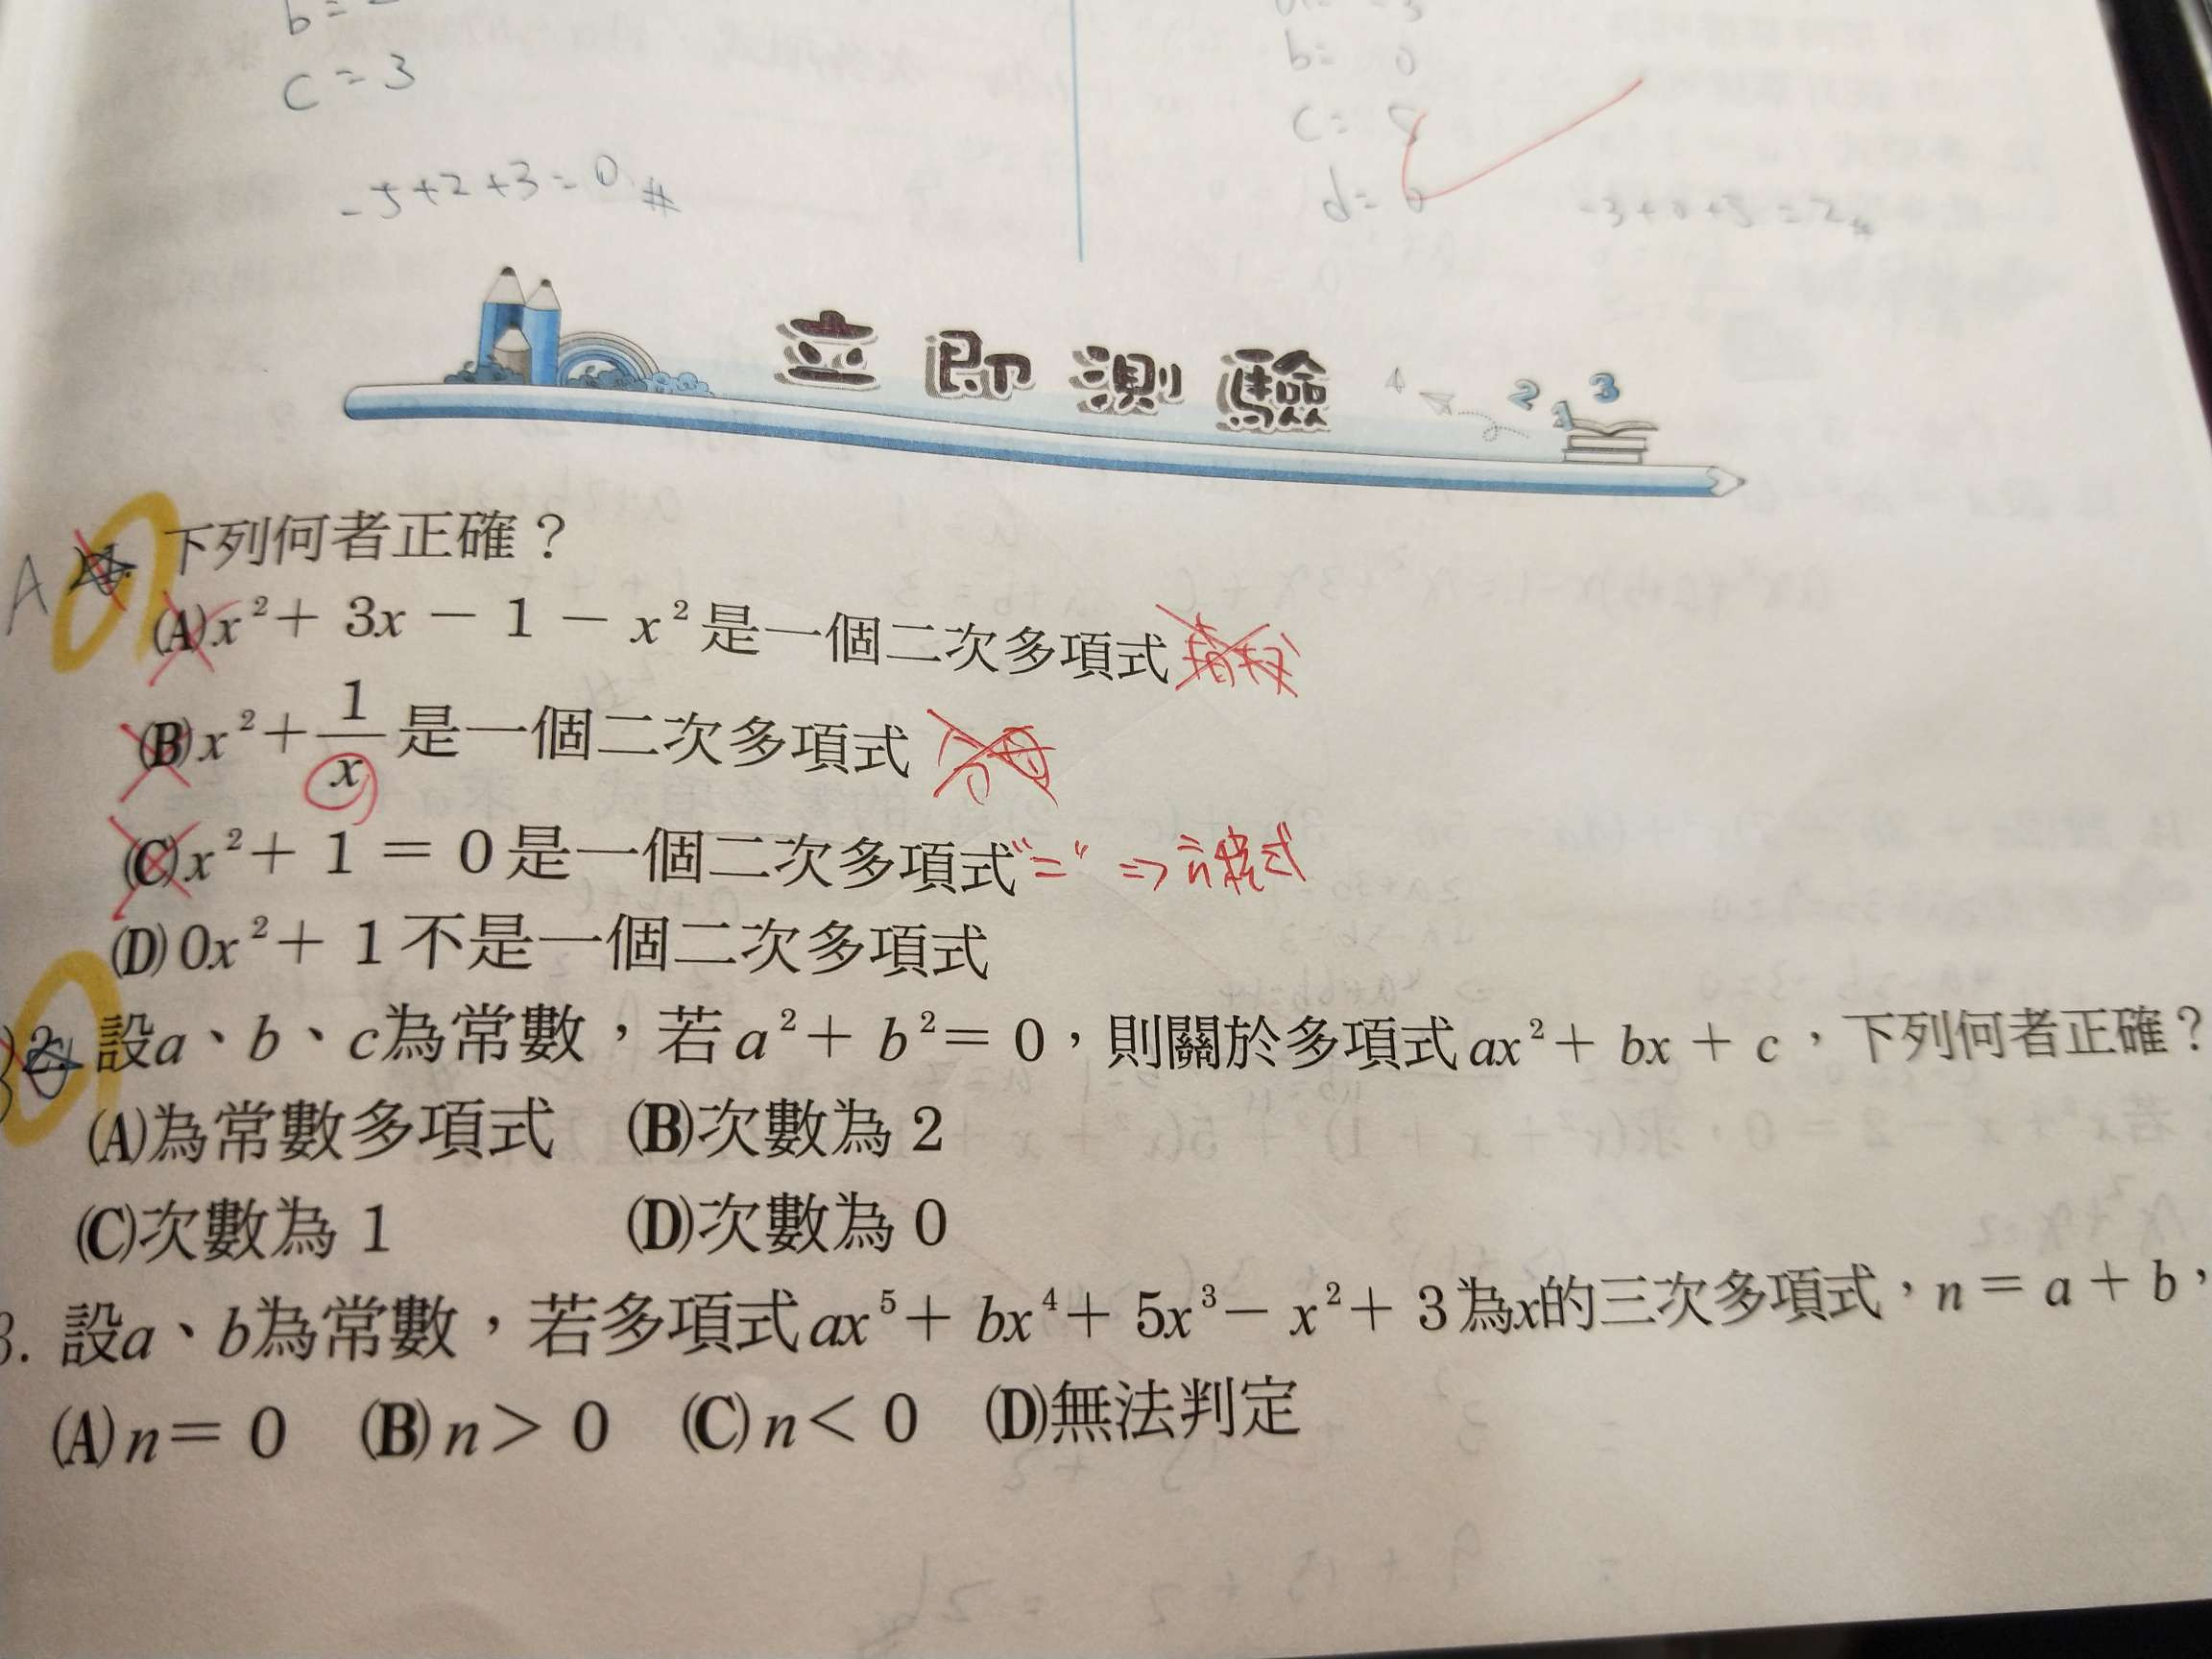 b=
c=3
-5+2+3=0 #
b= 0
c=
d= 0
-3+0+5=2 #
立即測驗
4 2 1 3
A
下列何者正確？
(A) x²+ 3x － 1 － x² 是一個二次多項式
(B) x²+ 1/x 是一個二次多項式 分母
(C) x²+ 1 ＝ 0 是一個二次多項式 "=" => 方程式
(D) 0x²+ 1 不是一個二次多項式
2. 設a、b、c為常數，若 a²+ b²= 0，則關於多項式 ax²+ bx + c，下列何者正確？
(A)為常數多項式 (B)次數為 2
(C)次數為 1 (D)次數為 0
3. 設a、b為常數，若多項式 ax⁵+ bx⁴+ 5x³－ x²+ 3 為x的三次多項式，n = a + b，
(A) n＝ 0 (B) n＞ 0 (C) n＜ 0 (D)無法判定